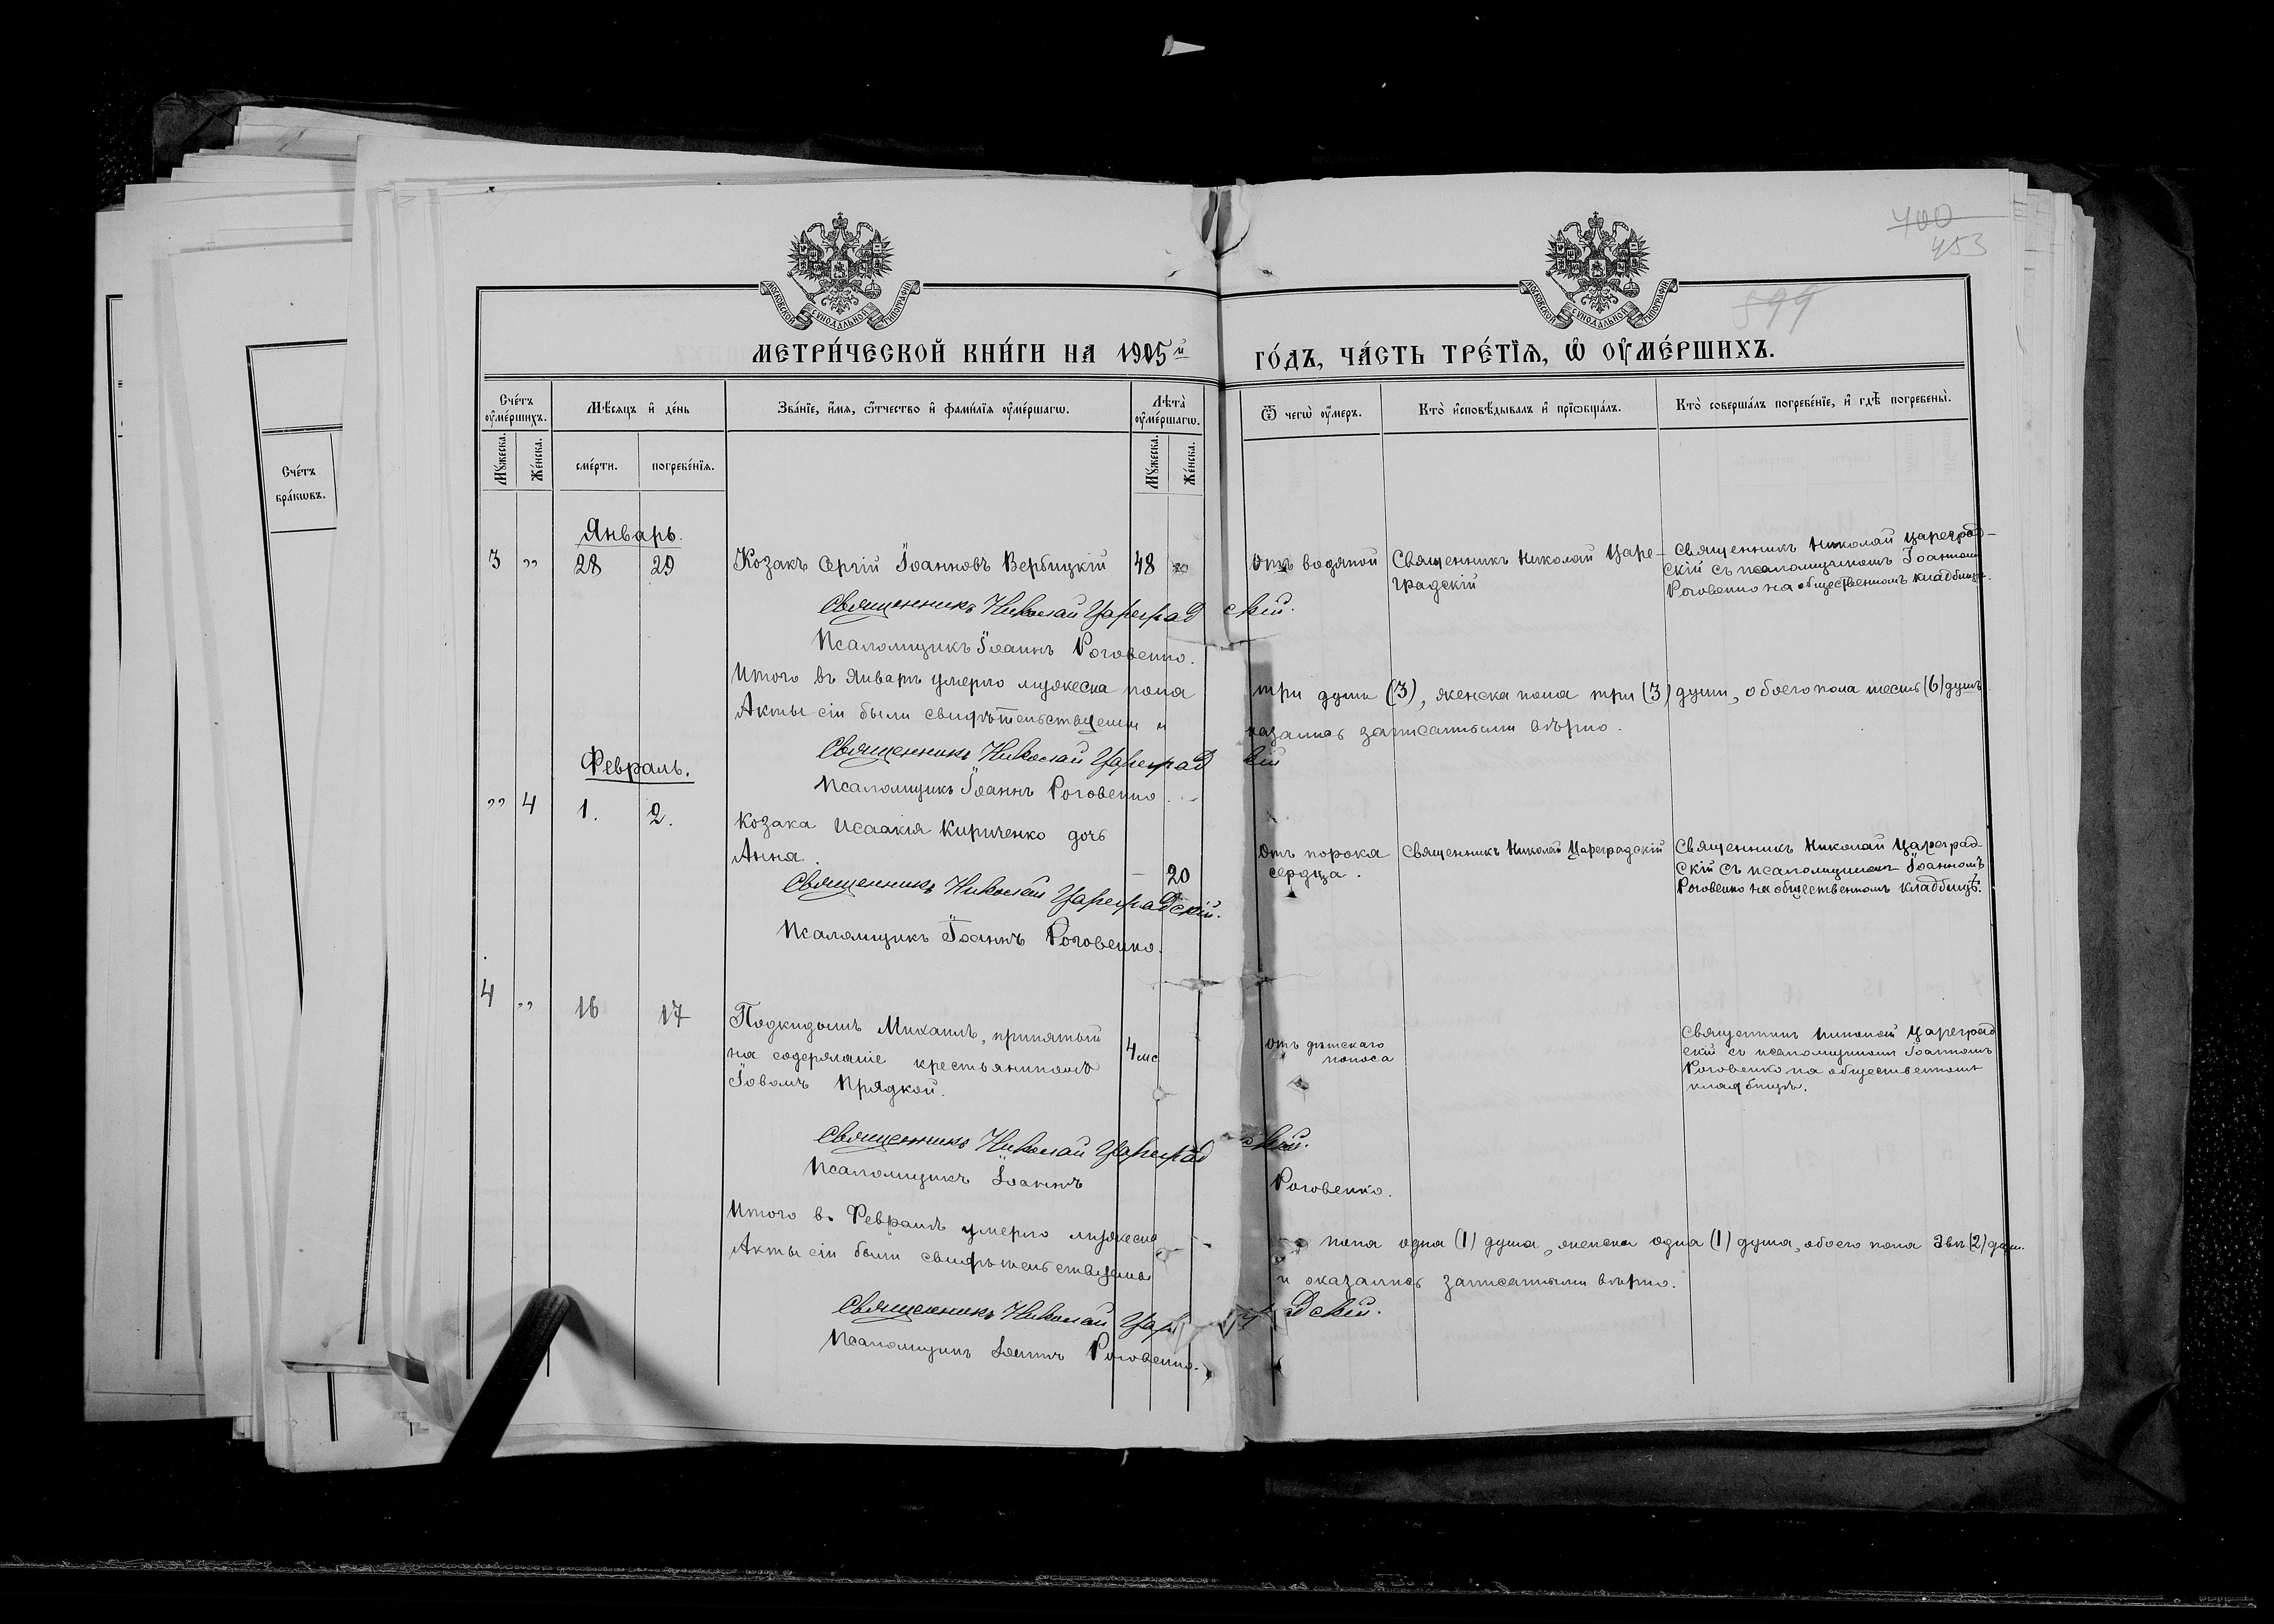 400
453
599
МОСКОВСКОЙ СУНОДАЛЬНОЙ ТИПОГРАФІИ
МОСКОВСКОЙ СУНОДАЛЬНОЙ ТИПОГРАФІИ
МЕТРИ́ЧЕСКОЙ КНИ́ГИ НА 1905й ГО́ДЪ, ЧА́СТЬ ТРЕ́ТЇѦ, Ѡ҆ ОУ҆МЕ́РШИХЪ.
Сче́тъ
бра́кѡвъ.
Сче́тъ
оу҆ме́ршихъ.
Мꙋ́жеска.
Же́нска.
Мѣ́сѧцъ и҆ де́нь
сме́рти.
погребе́нїѧ.
Зва́нїе, и҆́мѧ, ѻ҆́тчество и҆ фами́лїѧ оу҆ме́ршагѡ.
Лѣ́та
оу҆ме́ршагѡ.
Мꙋ́жеска.
Же́нска.
Ѿ чегѡ̀ оу҆́меръ.
Кто̀ и҆сповѣ́дывалъ и҆ прїѡбща́лъ.
Кто̀ соверша́лъ погребе́нїе, и҆ гдѣ̀ погребены̀.
Январь.
3 „ 28 29 Козакъ Сергій Іоанновъ Вербицкій 48 Отъ водяной Священникъ Николай Царе-
градскій
Священникъ Николай Цареград-
скій съ псаломщикомъ Іоанномъ
Роговенко на общественномъ кладбищѣ.
Священникъ Николай Цареградскій.
Псаломщикъ Іоаннъ Роговенко.
Итого въ Январѣ умерло мужеска пола три души (3), женска пола три (3) души, обоего пола шесть (6) душъ
Акты сіи были свидѣтельствуемы и казались записанными вѣрно.
Священникъ Николай Цареградскій
Псаломщикъ Іоаннъ Роговенко.
Февраль.
„ 4 1. 2. Козака Исаакія Кириченко дочь
Анна. 20
Отъ порока
сердца.
Священникъ Николай Цареградскій
Священникъ Николай Цареград-
скій съ псаломщикомъ Іоанномъ
Роговенко на общественномъ кладбищѣ.
Священникъ Николай Цареградскій.
Псаломщикъ Іоаннъ Роговенко.
4 „ 16 17 Подкидышъ Михаилъ, принятый
на содержаніе крестьяниномъ
Іовомъ Прядкой.
4 мс
Отъ дѣтскаго
поноса
Священникъ Николай Цареград
скій съ псаломщикомъ Іоанномъ
Роговенко на общественномъ
кладбищѣ.
Священникъ Николай Цареградскій.
Псаломщикъ Іоаннъ Роговенко.
Итого въ Февралѣ умерло мужеска пола одна (1) душа, женска одна (1) душа, обоего пола двѣ (2) душ.
Акты сіи были свидѣтельствуемы и оказались записанными вѣрно.
Священникъ Николай Цар дскій.
Псаломщикъ Іоаннъ Роговенко.